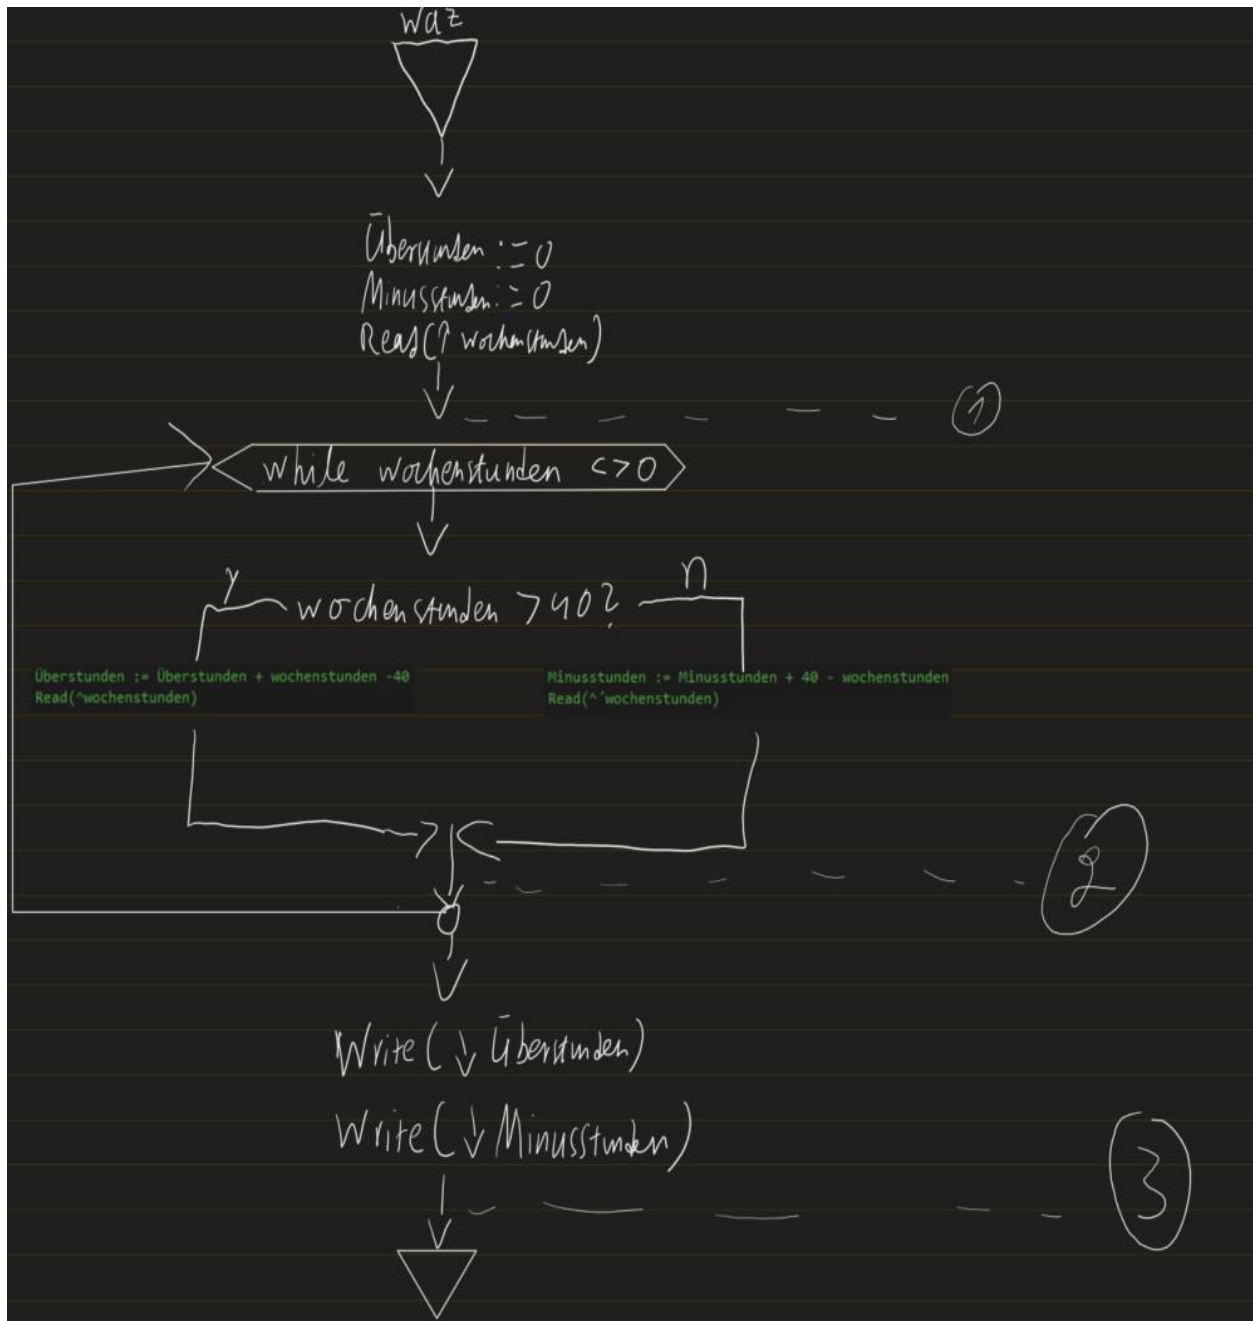 waz
Überstunden := 0
Minusstunden := 0
Read(↑ wochenstunden)
1
while wochenstunden <>0
y wochenstunden >40? n
Überstunden := Überstunden + wochenstunden -40
Read(^wochenstunden)
Minusstunden := Minusstunden + 40 - wochenstunden
Read(^´wochenstunden)
2
Write(↓ Überstunden)
Write(↓ Minusstunden)
3